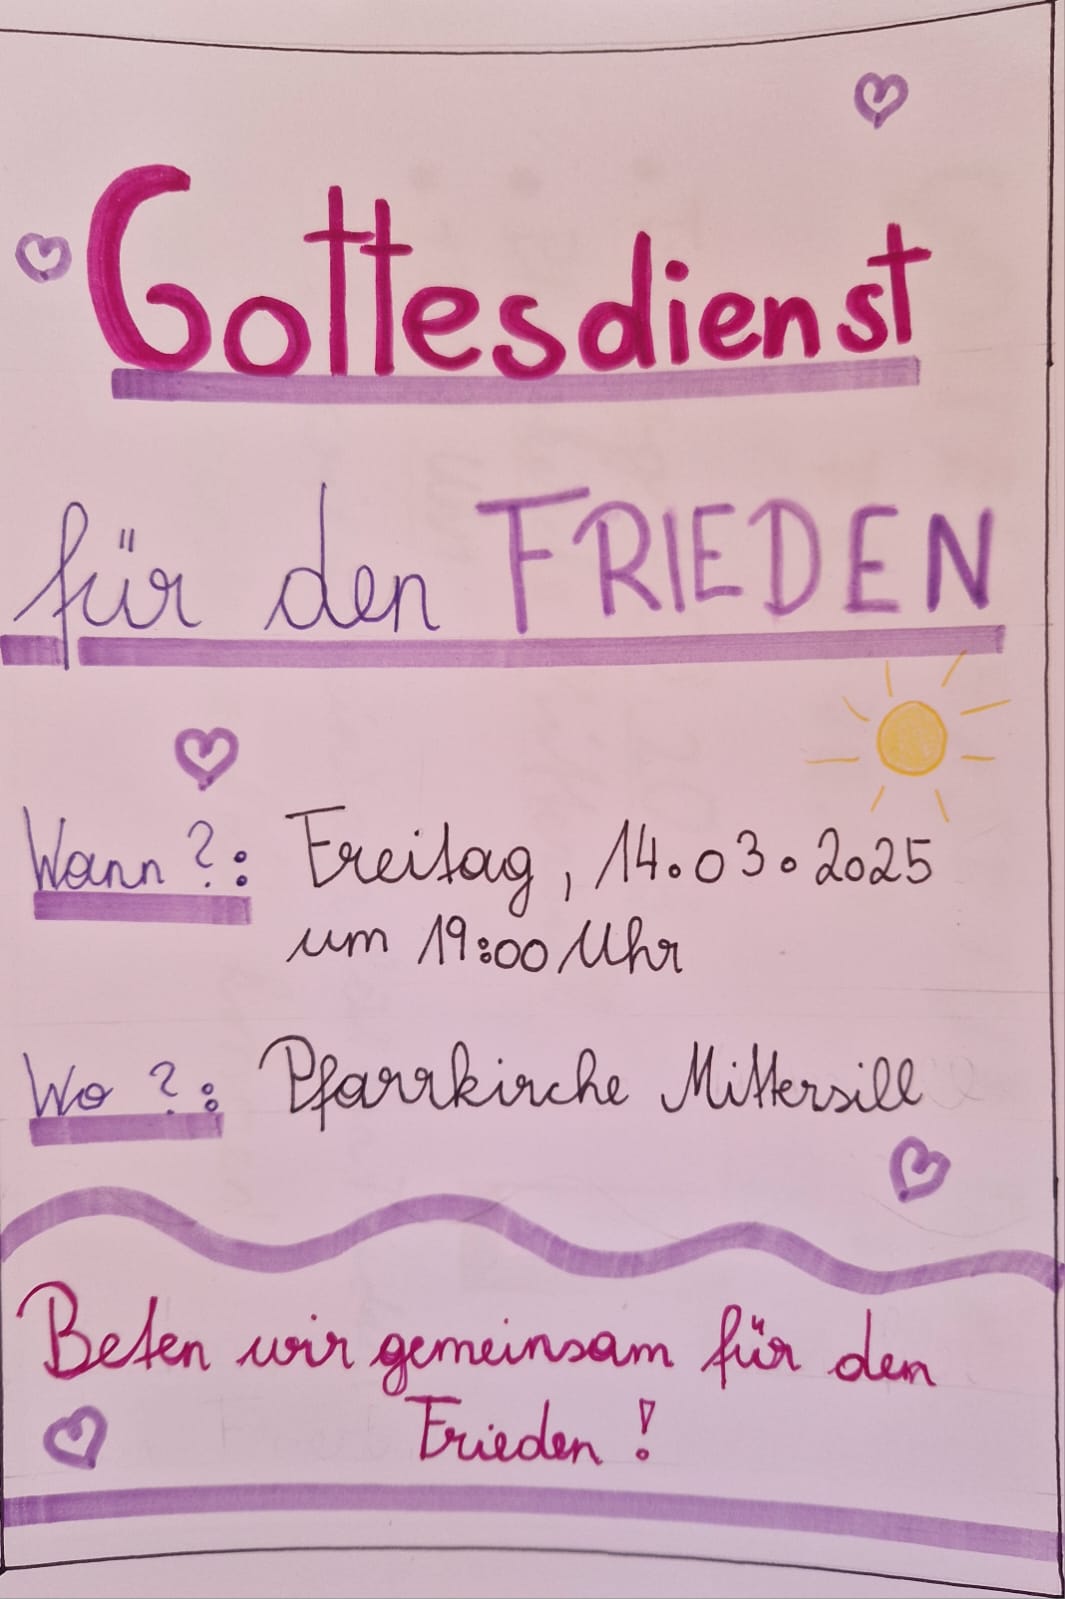 Gottesdienst
für den FRIEDEN
Wann?: Freitag, 14.03.2025
um 19:00 Uhr
Wo?: Pfarrkirche Mittersill
Beten wir gemeinsam für den
Frieden!